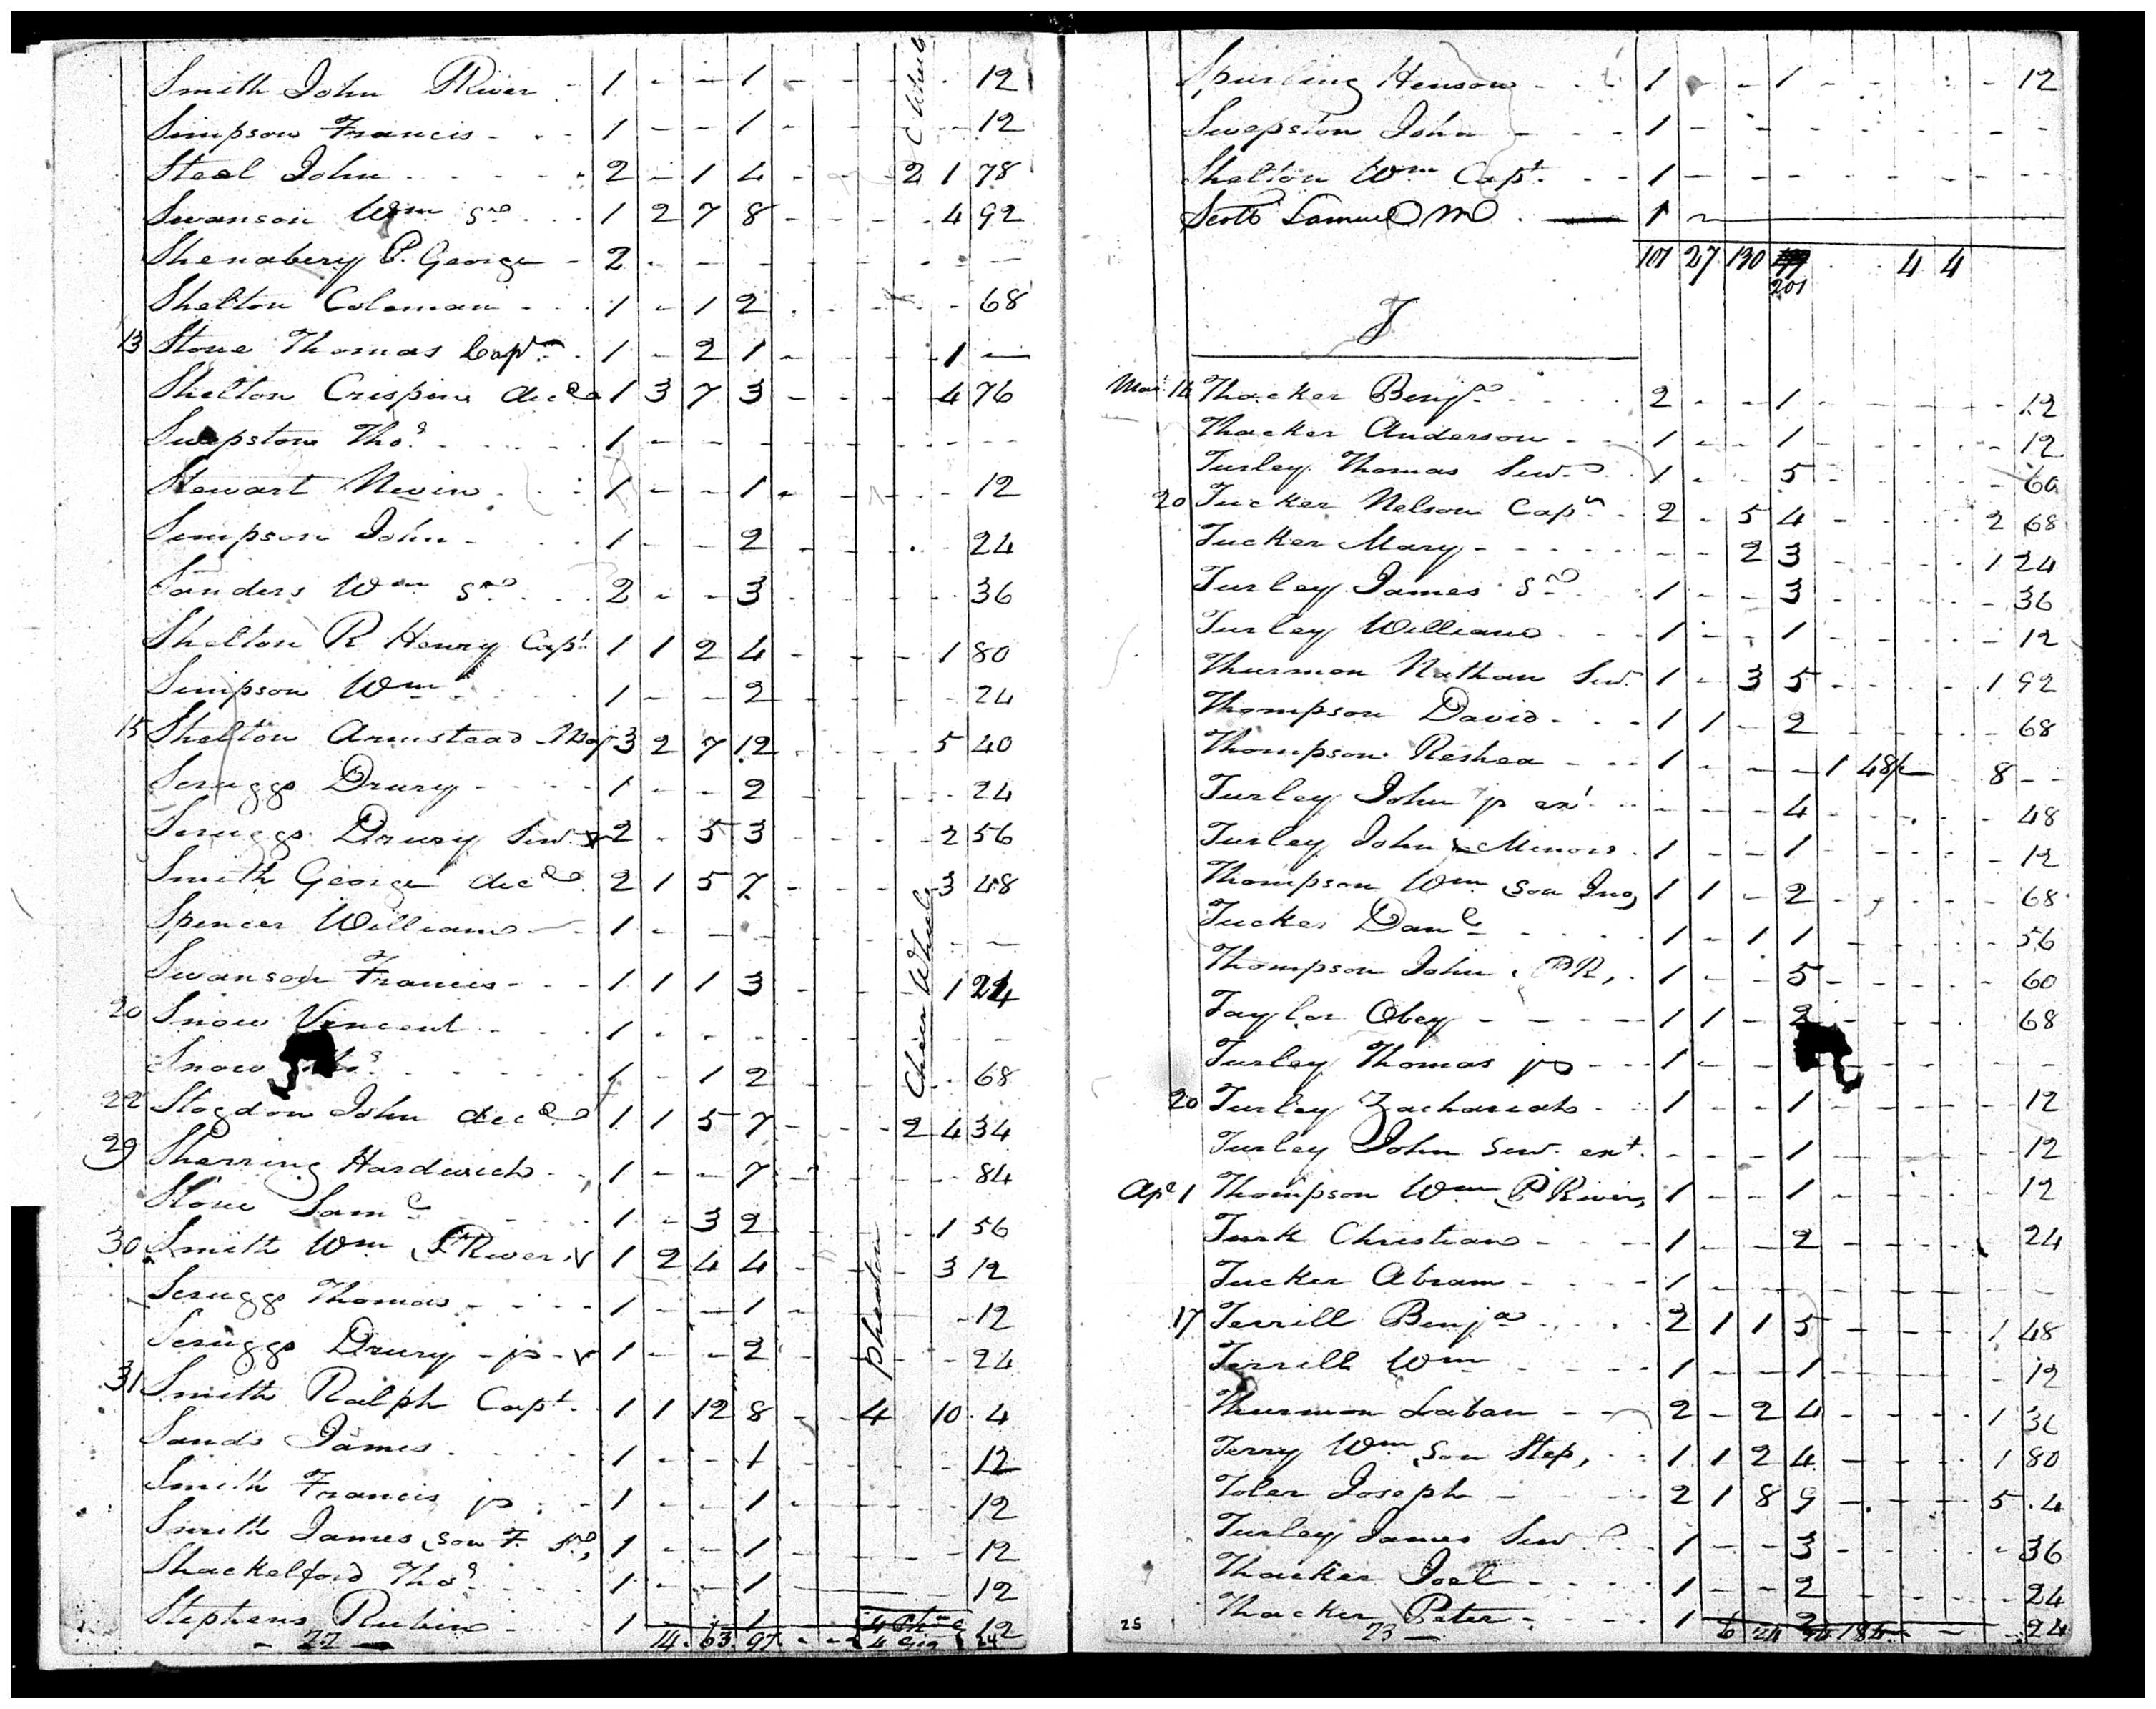 Smith John PRiver - 1 - - 1 - - - - 12
Simpson Francis - - - 1 - - 1 - - - - 12
Steel John - - - - - 2 - 1 4 - - - 2 1 78
Swanson Wm Sr - - 1 2 7 8 - - - - 4 92
Shenabery P. George - 2 - - - - - - - -
Shelton Coleman - - - 1 - 1 2 - - - - 68
13 Stone Thomas Capt - 1 - 2 1 - - - - 1 -
Shelton Crispin decd 1 3 7 3 - - - 4 76
Swepston Thos - - - - 1 - - - - - - - -
Stewart Nevin - - - 1 - - 1 - - - - 12
Simpson John - - - 1 - - 2 - - - - 24
Sanders Wm Sr - - - 2 - - 3 - - - - 36
Shelton R Henry Capt 1 1 2 4 - - - 1 80
Simpson Wm - - - 1 - - 2 - - - - 24
15 Shelton Armstead Maj 3 2 7 12 - - - - 5 40
Scruggs Drury - - - - 1 - - 2 - - - - 24
Scruggs Drury Senr v 2 - 5 3 - - - - 2 56
Smith George decd 2 1 5 7 - - - 3 48
Spencer William - - 1 - - - - - - -
Swanson Francis - - - 1 1 1 3 - - - 1 24
20 Snow Vincent - - - 1 - - - - - - -
Snow Thos - - - - - 1 - 1 2 - - - - 68
22 Stogdon John decd 1 1 5 7 - - - 2 4 34
29 Sherring Hardwick - - 1 - - 7 - - - - 84
Stone Saml - - - 1 - 3 2 - - - 1 56
30 Smith Wm PRiver v 1 2 4 4 - - - 3 12
Scruggs Thomas - - - - 1 - - 1 - - 12
Scruggs Drury - jr - v 1 - - 2 - - - 24
31 Smith Ralph Capt - 1 1 12 8 - - 4 10 . 4
Sands James - - - - 1 - - 1 - - - - 12
Smith Francis jr - - 1 - - 1 - - - - 12
Smith James son F. Sr, 1 - - 1 - - - - 12
Shackelford Thos - - - 1 - - 1 - - - 12
Stephens Rubin - - - 1 1 12
- 22 - 14 . 63 . 97 - - -
Chair Wheels
Phaeton
Spurling Henson - - - 1 - - 1 - - - - 12
Swepston John - - - 1 - - - - - - - -
Shelton Wm Capt - - 1 - - - - - - - -
Scott Samuel M 1
101 27 130 201 4 4
T
Mar 14 Thacker Benja - - - - 2 - - 1 - - - - 12
Thacker Anderson - - 1 - - 1 - - - - 12
Turley Thomas Senr - 1 - - 5 - - - - 60
20 Tucker Nelson Capt - 2 - 5 4 - - - - 2 68
Tucker Mary - - - - - - 2 3 - - - - 1 24
Turley James Sr 1 - - 3 - - - - 36
Turley William - - - 1 - - 1 - - - - 12
Thurmon Nathan Senr 1 - 3 5 - - - - 1 92
Thompson David - - - 1 1 - 2 - - - - 68
Thompson Reshea - - - 1 - - - 1 48/ - 8 - -
Turley John jr ext - - - - 4 - - - - 48
Turley John Minor - 1 - - 1 - - - - 12
Thompson Wm son Jno, 1 1 - 2 - - - - 68
Tucker Danl - - - - 1 - 1 1 - - - - 56
Thompson John PR, - 1 - - 5 - - - - 60
Taylor Obey - - - - 1 1 - 2 - - - 68
Turley Thomas jr - - - 1 - - - - - -
20 Turley Zachariah - - 1 - - 1 - - - - 12
Turley John Senr ext - - - 1 - - - - 12
Apl 1 Thompson Wm P River, 1 - - 1 - - - - 12
Turk Christian - - - 1 - - 2 - - - - 24
Tucker Abram - - - - 1 - - - - - - -
17 Terrill Benja - - - - 2 1 1 5 - - - - 1 48
Terrill Wm - - - - 1 - - 1 - - - - 12
Thurmon Laban - - 2 - 2 4 - - - - 1 36
Terry Wm Son Step, - - 1 1 2 4 - - - 1 80
Toler Joseph - - - 2 1 8 9 - - - - 5 . 4
Turley James Senr - - 1 - - 3 - - - - 36
Thacker Joel - - - - 1 - - 2 - - - - 24
Thacker Peter - - - - 1 2 24
25 23 - 6 24